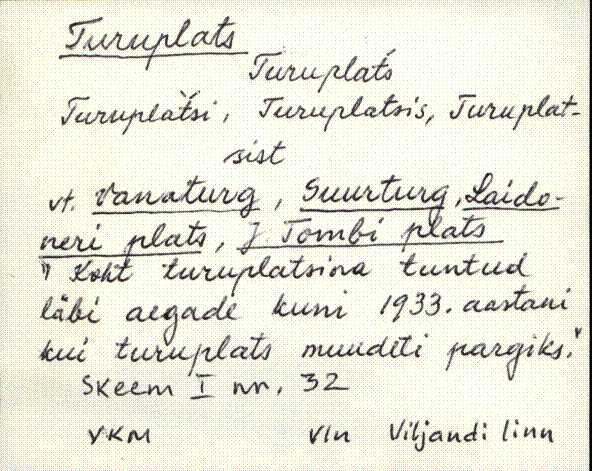 Turuplats
Turuplat's
Turuplat'si, Turuplatsis, Turuplat-
sist
vt. Vanaturg, Suurturg, Laido-
neri plats, J. Tombi plats
"Koht turuplatsina tuntud
läbi aegade kuni 1933. aastani
kui turuplats muudeti pargiks."
Skeem I nr. 32
VKM Vln Viljandi linn